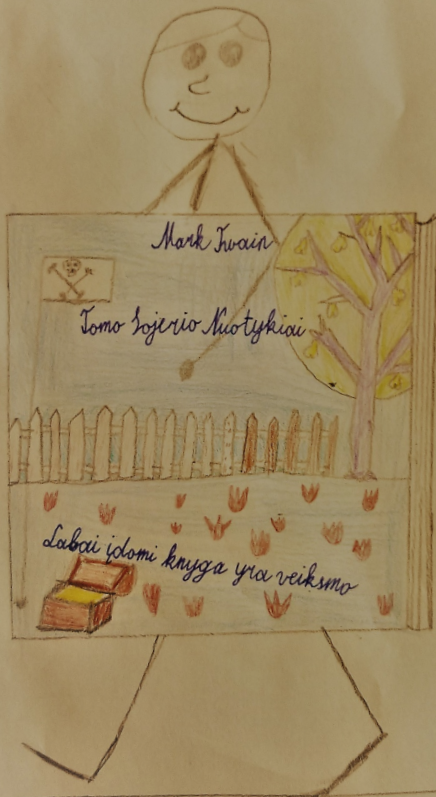 Mark Twain
Tomo Sojerio Nuotykiai
Labai įdomi knyga yra veiksmo